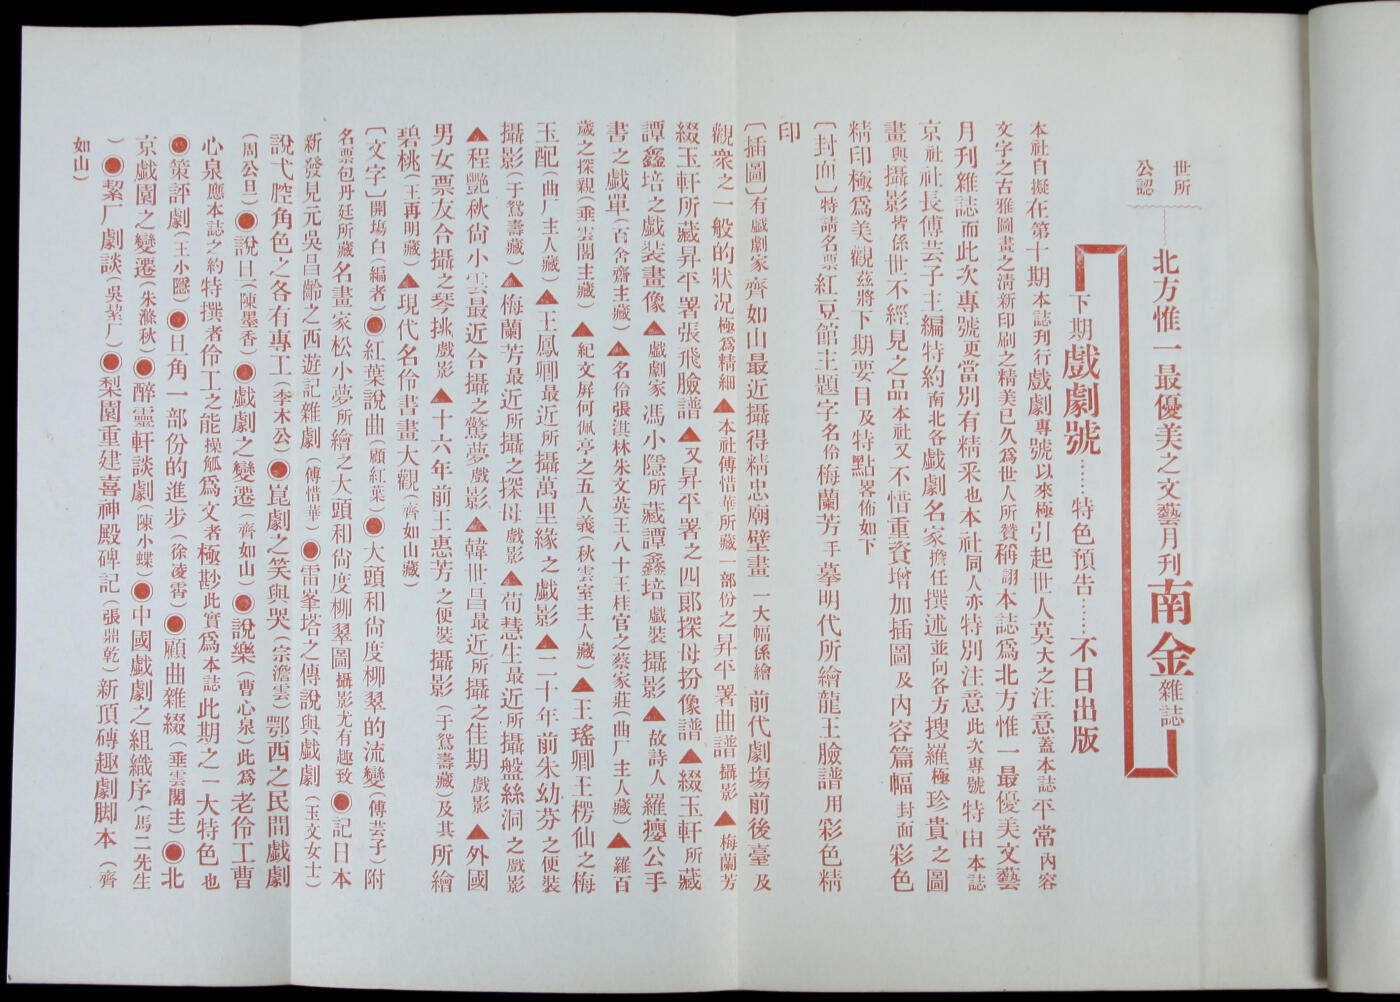 世所
公認
北方惟一最優美之文藝月刊南金雜誌
下期戲劇號……特色預告……不日出版
本社自擬在第十期本誌刋行戲劇專號以來極引起世人莫大之注意蓋本誌平常內容
文字之古雅圖畫之清新印刷之精美已久爲世人所贊稱詡本誌爲北方惟一最優美文藝
月刊雜誌而此次專號更當別有精采也本社同人亦特別注意此次專號特由本誌
京社社長傅芸子主編特約南北各戲劇名家擔任撰述並向各方搜羅極珍貴之圖
畫與攝影皆係世不經見之品本社又不惜重資增加插圖及內容篇幅封面彩色
精印極爲美觀茲將下期要目及特點畧佈如下
〔封面〕特請名票紅豆館主題字名伶梅蘭芳手摹明代所繪龍王臉譜用彩色精
印
〔插圖〕有戲劇家齊如山最近攝得精忠廟壁畫一大幅係繪前代劇塲前後臺及
觀衆之一般的狀況極爲精細▲本社傅惜華所藏一部份之昇平署曲譜攝影▲梅蘭芳
綴玉軒所藏昇平署張飛臉譜▲又昇平署之四郞探母扮像譜▲綴玉軒所藏
譚鑫培之戲裝畫像▲戲劇家馮小隱所藏譚鑫培戲裝攝影▲故詩人羅癭公手
書之戲單（百舍齋主藏）▲名伶張淇林朱文英王八十王桂官之蔡家莊（曲厂主人藏）▲羅百
歲之探親（垂雲閣主藏）▲紀文屏何佩亭之五人義（秋雲室主人藏）▲王瑤卿王楞仙之梅
玉配（曲厂主人藏）▲王鳳卿最近所攝萬里緣之戲影▲二十年前朱幼芬之便裝
攝影（于鴛壽藏）▲梅蘭芳最近所攝之探母戲影▲荀慧生最近所攝盤絲洞之戲影
▲程艷秋尙小雲最近合攝之驚夢戲影▲韓世昌最近所攝之佳期戲影▲外國
男女票友合攝之琴挑戲影▲十六年前王蕙芳之便裝攝影（于鴛壽藏）及其所繪
碧桃（王再明藏）▲現代名伶書畫大觀（齊如山藏）
〔文字〕開塲白（編者）◉紅葉說曲（顧紅葉）◉大頭和尙度柳翠的流變（傅芸子）附
名票包丹廷所藏名畫家松小夢所繪之大頭和尙度柳翠圖攝影尤有趣致◉記日本
新發見元吳昌齡之西遊記雜劇（傅惜華）◉雷峯塔之傳說與戲劇（玉文女士）
說弋腔角色之各有專工（李木公）◉崑劇之笑與哭（宗澹雲）鄂西之民間戲劇
（周公旦）◉說旦（陳墨香）◉戲劇之變遷（齊如山）◉說樂（曹心泉）此爲老伶工曹
心泉應本誌之約特撰者伶工之能操觚爲文者極尠此實爲本誌此期之一大特色也
◉策評劇（王小隱）◉旦角一部份的進步（徐凌霄）◉顧曲雜綴（垂雲閣主）◉北
京戲園之變遷（朱滌秋）◉醉靈軒談劇（陳小蝶）◉中國戲劇之組織序（馬二先生
）◉絜厂劇談（吳絜厂）◉梨園重建喜神殿碑記（張鼎乾）新頂磚趣劇脚本（齊
如山）